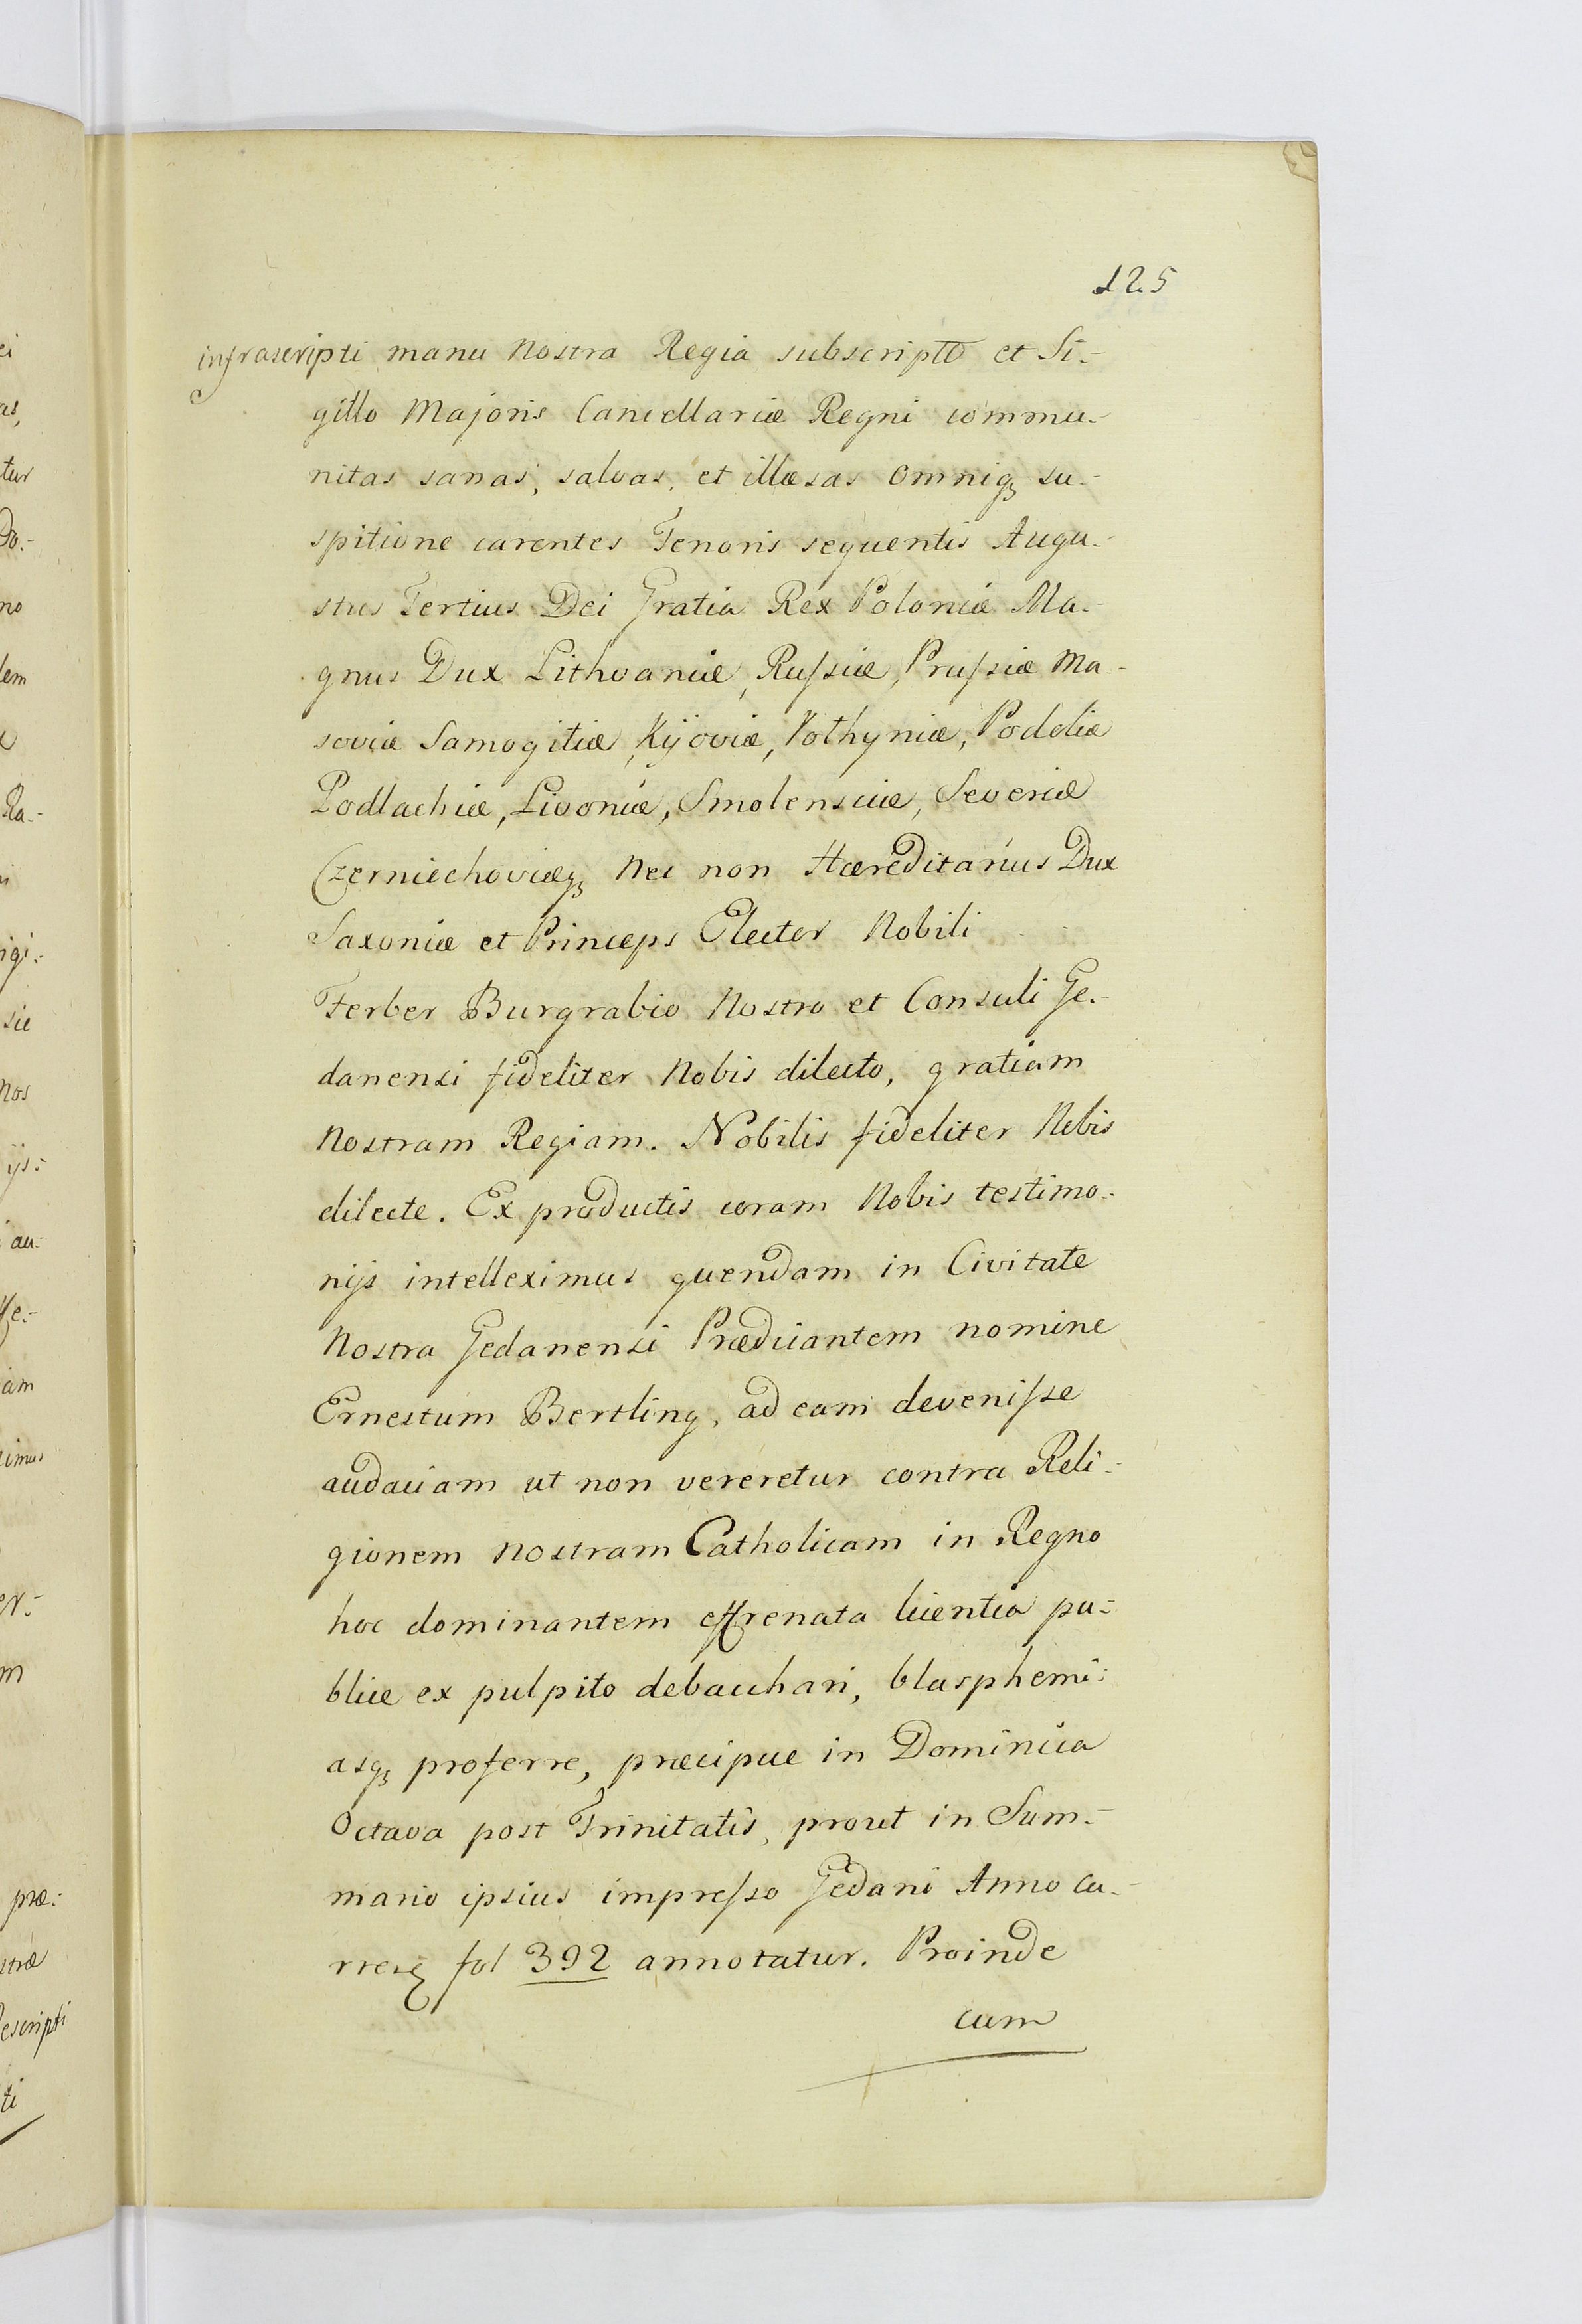 125
infrascripti manu Nostra Regia subscripto et Si-
gillo Majoris Cancellariæ Regni commu-
nitas sanas, salvas, et illæsas omniq3 su-
spitione carentes Tenoris sequentis Augu-
stus Tertius Dei Gratia Rex Poloniæ Ma-
gnus Dux Lithvaniæ, Rufsiæ, Prufsiæ Ma-
soviæ Samogitiæ, Kijoviæ, Volhyniæ, Podoliæ
Podlachiæ, Livoniæ, Smolensciæ, Severiæ
Czerniechoviæq3 Nec non Hæreditarius Dux
Saxoniæ et Princeps Elector Nobili
Ferber Burgrabio Nostro et Consuli Ge-
danensi fideliter Nobis dilecto, gratiam
Nostram Regiam. Nobilis fideliter Nobis
dilecte. Ex productis coram Nobis testimo-
nijs intelleximus quendam in Civitate
Nostra Gedanensi Prædicantem nomine
Ernestum Bertling, ad eam devenifse
audaciam ut non vereretur contra Reli-
gionem nostram Catholicam in Regno
hoc dominantem effrenata licentia pu-
blice ex pulpito debacchari, blasphemi-
asq3 proferre, præcipue in Dominica
Octava post Trinitatis, prout in Sum-
mario ipsius imprefso Gedani Anno cu-
fol 392 annotatur. Proinde
cum
ei
as,
tur
Do-
no
dem
Ra-
igi-
sie
nos
ijs-
au-
iam
imus
er-
m
præ-
stræ
escripti
ti